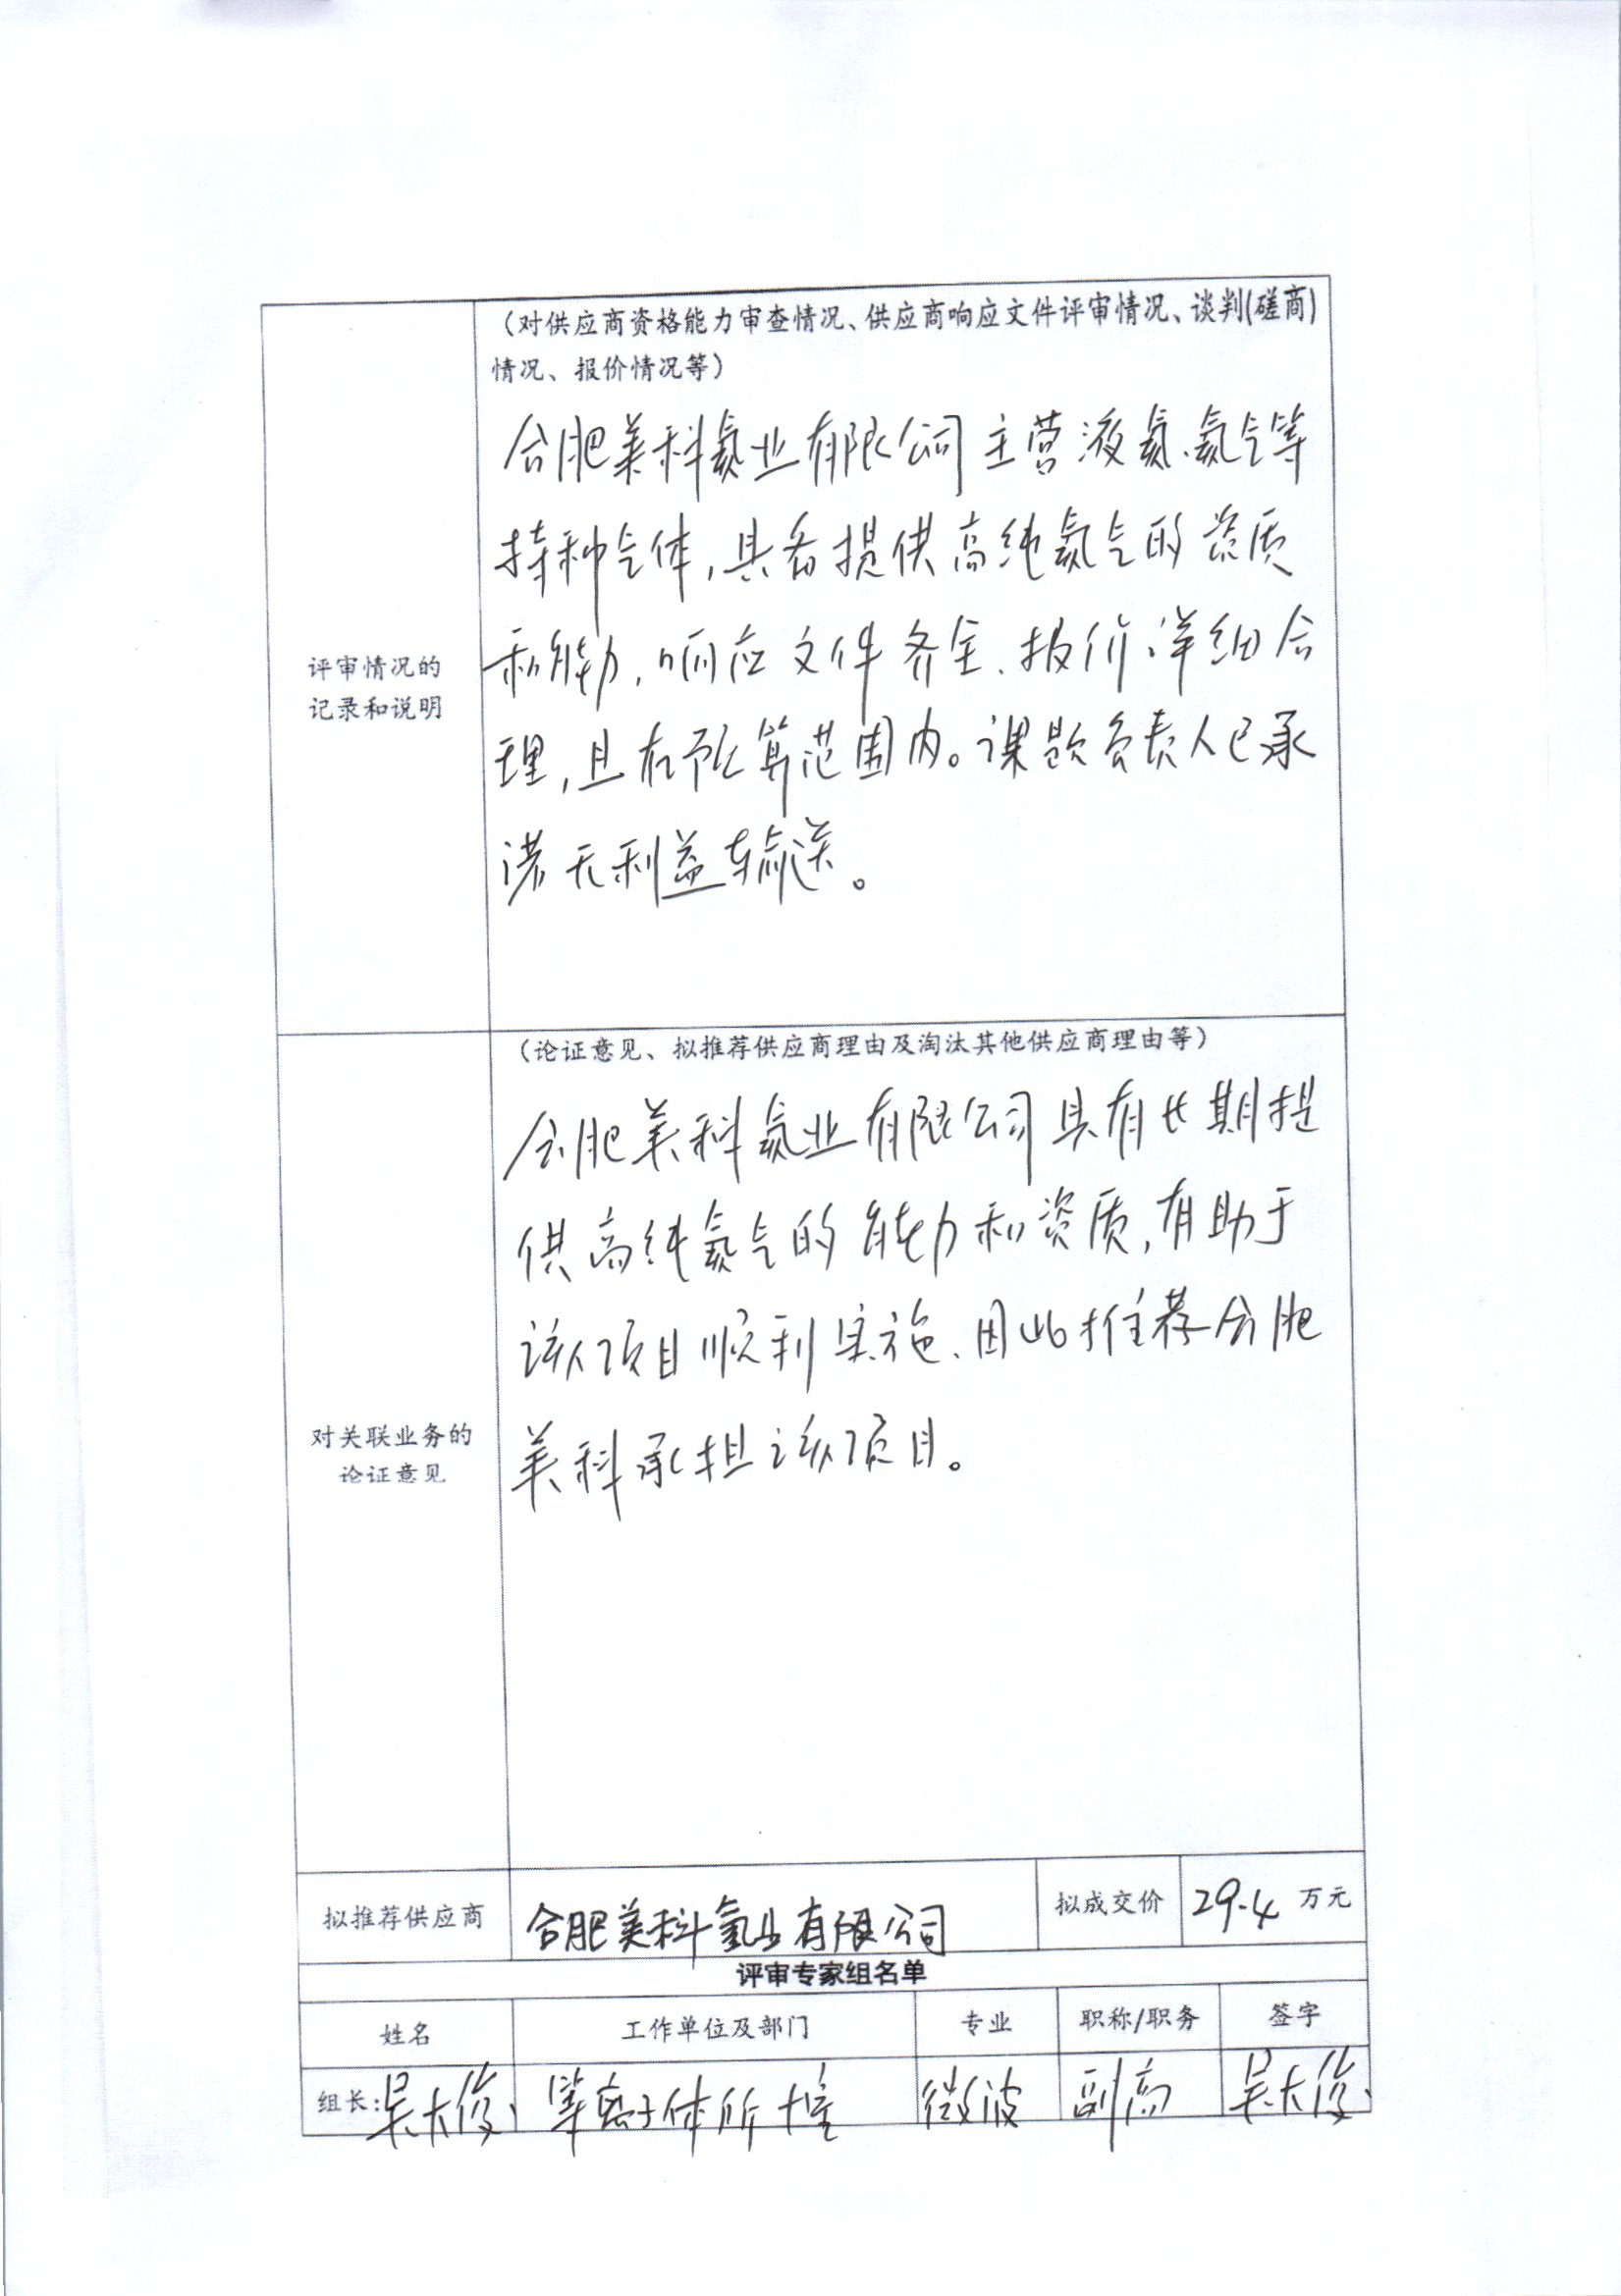 （对供应商资格能力审查情况、供应商响应文件评审情况、谈判(磋商)
情况、报价情况等）
合肥美科氦业有限公司主营液氦、氦气等
特种气体，具备提供高纯氦气的资质
和能力，响应文件齐全、报价详细合
理，且在预算范围内。课题负责人已承
诺无利益输送。
评审情况的
记录和说明
（论证意见、拟推荐供应商理由及淘汰其他供应商理由等）
合肥美科氦业有限公司具有长期提
供高纯氦气的能力和资质，有助于
该项目顺利实施、因此推荐合肥
美科承担该项目。
对关联业务的
论证意见
拟推荐供应商 合肥美科氦业有限公司 拟成交价 29.4 万元
评审专家组名单
姓名 工作单位及部门 专业 职称/职务 签字
组长: 吴大俊 等离子体所十室 微波 副高 吴大俊